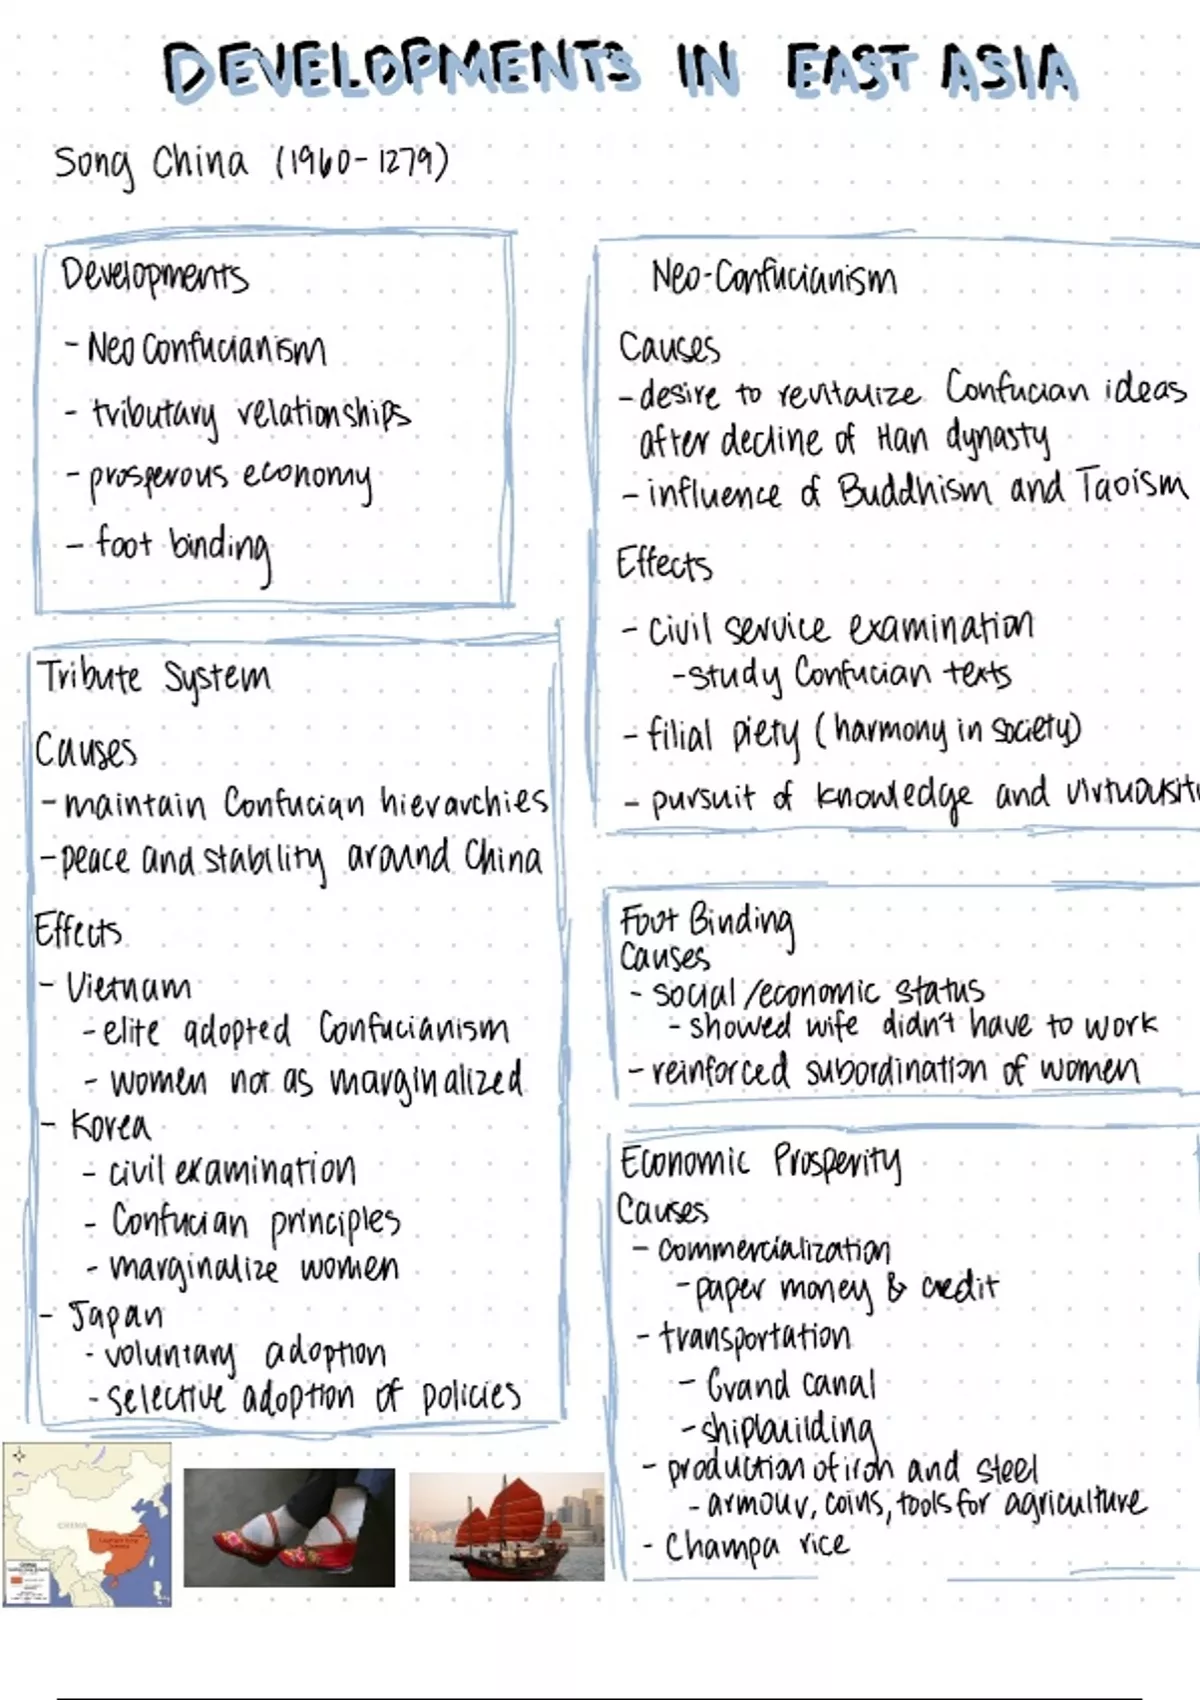 DEVELOPMENTS IN EAST ASIA
Song China (1960-1279)
Developments
- Neo Confucianism
- tributary relationships
- prosperous economy
- foot binding
Tribute System
Causes
- maintain Confucian hierarchies
- peace and stability around China
Effects
- Vietnam
- elite adopted Confucianism
- women not as marginalized
- Korea
- civil examination
- Confucian principles
- marginalize women
- Japan
- voluntary adoption
- selective adoption of policies
Neo-Confucianism
Causes
- desire to revitalize Confucian ideas
after decline of Han dynasty
- influence of Buddhism and Taoism
Effects
- civil service examination
- study Confucian texts
- filial piety (harmony in society)
- pursuit of knowledge and
Foot Binding
Causes
- social/economic status
- showed wife didn't have to work
- reinforced subordination of women
Economic Prosperity
Causes
- commercialization
- paper money & credit
- transportation
- Grand canal
- shipbuilding
- production of iron and steel
- armour, coins, tools for agriculture
- Champa rice
CHINA